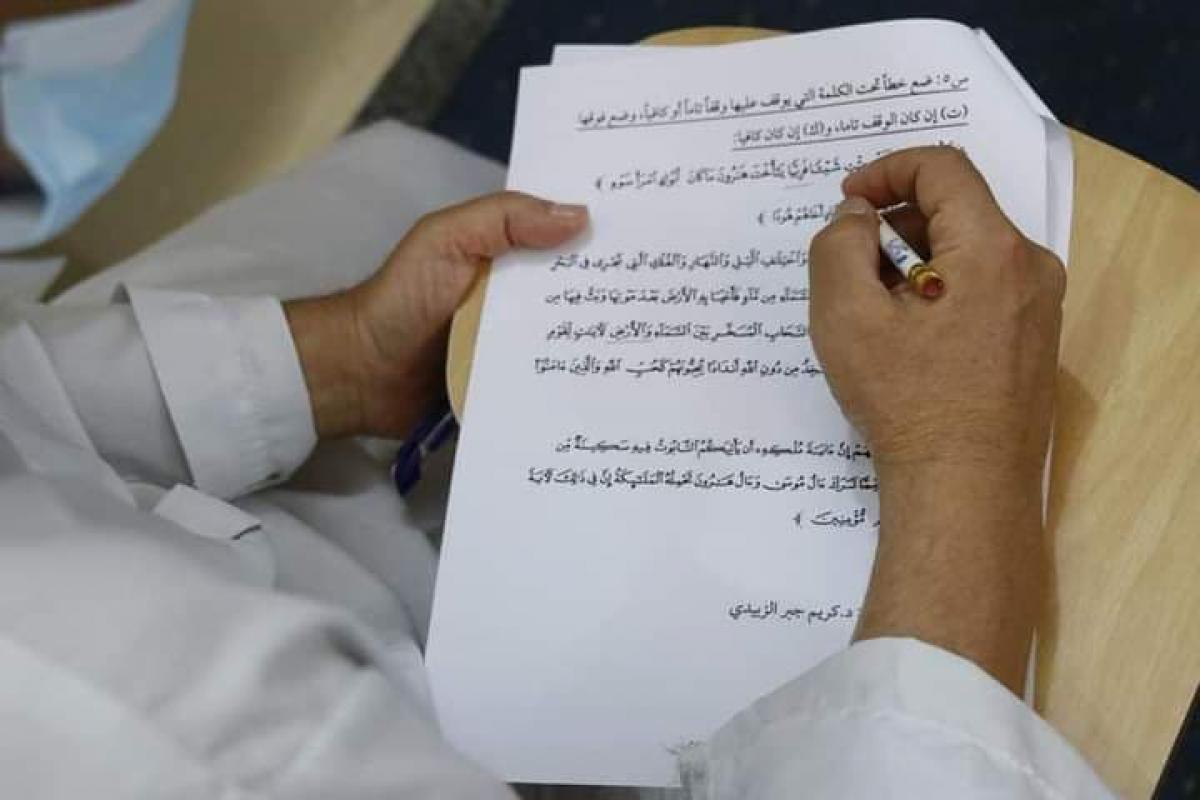 س٥: ضع خطاً تحت الكلمة التي يوقف عليها وقفاً تاماً أو كافياً، وضع فوقها
(ت) إن كان الوقف تاما، و(ك) إن كان كافيا:
شَيْـًٔا فَرِيًّا يَٰٓأُخْتَ هَٰرُونَ مَا كَانَ أَبُوكِ ٱمْرَأَ سَوْءٍ ﴾
أَخَاهُمْ هُودًا ﴾
وَٱخْتِلَٰفِ ٱلَّيْلِ وَٱلنَّهَارِ وَٱلْفُلْكِ ٱلَّتِى تَجْرِى فِى ٱلْبَحْرِ
ٱلسَّمَآءِ مِن مَّآءٍ فَأَحْيَا بِهِ ٱلْأَرْضَ بَعْدَ مَوْتِهَا وَبَثَّ فِيهَا مِن
وَٱلسَّحَابِ ٱلْمُسَخَّرِ بَيْنَ ٱلسَّمَآءِ وَٱلْأَرْضِ لَءَايَٰتٍ لِّقَوْمٍ
مِن دُونِ ٱللَّهِ أَندَادًا يُحِبُّونَهُمْ كَحُبِّ ٱللَّهِ وَٱلَّذِينَ ءَامَنُوٓا۟
إِنَّ ءَايَةَ مُلْكِهِۦٓ أَن يَأْتِيَكُمُ ٱلتَّابُوتُ فِيهِ سَكِينَةٌ مِّن
تَرَكَ ءَالُ مُوسَىٰ وَءَالُ هَٰرُونَ تَحْمِلُهُ ٱلْمَلَٰٓئِكَةُ إِنَّ فِى ذَٰلِكَ لَءَايَةً
مُّؤْمِنِينَ ﴾
: د.كريم جبر الزبيدي